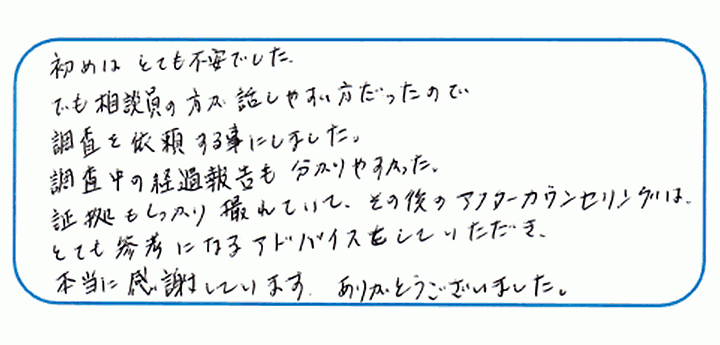 初めは とても不安でした.
でも相談員の方が話しやすい方だったので
調査を依頼する事にしました。
調査中の経過報告も分かりやすかった。
証拠もしっかり撮れていて、その後のアフターカウンセリングは、
とても参考になるアドバイスをしていただき、
本当に感謝しています. ありがとうございました。